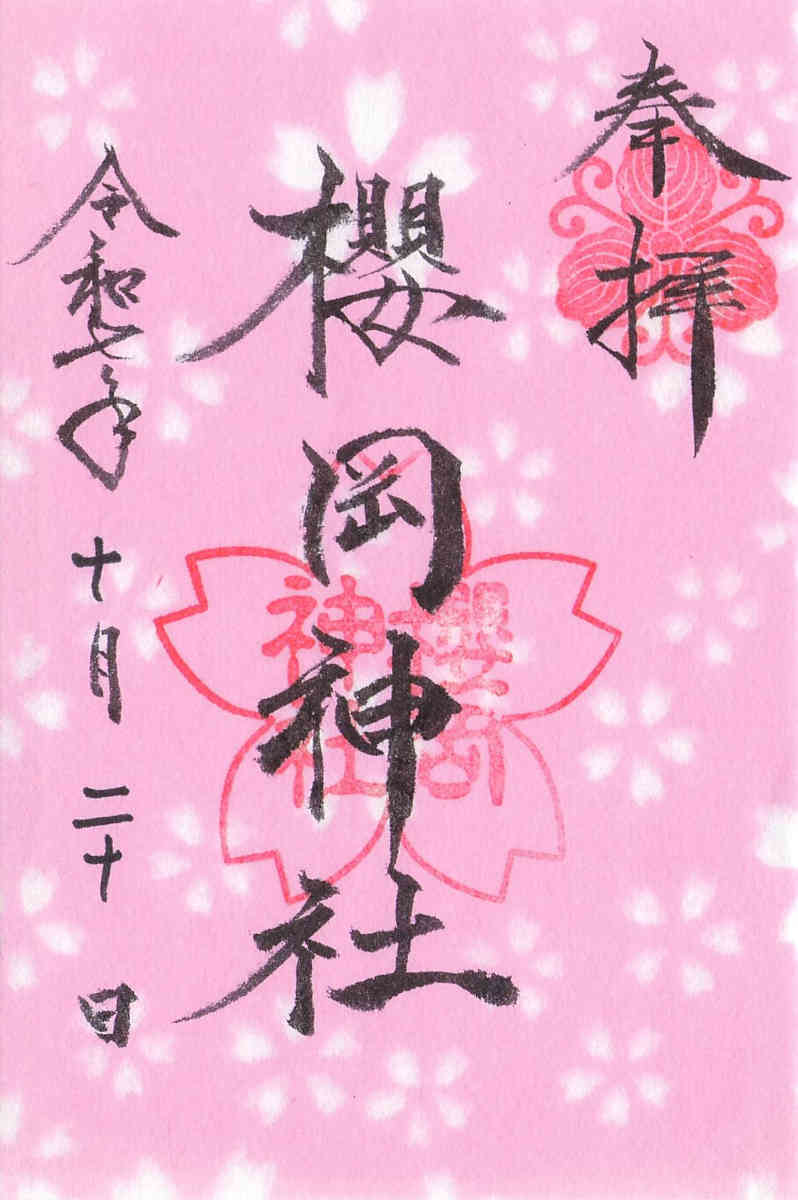 奉拝
櫻岡神社
櫻岡
神社
令和七年十月二十日